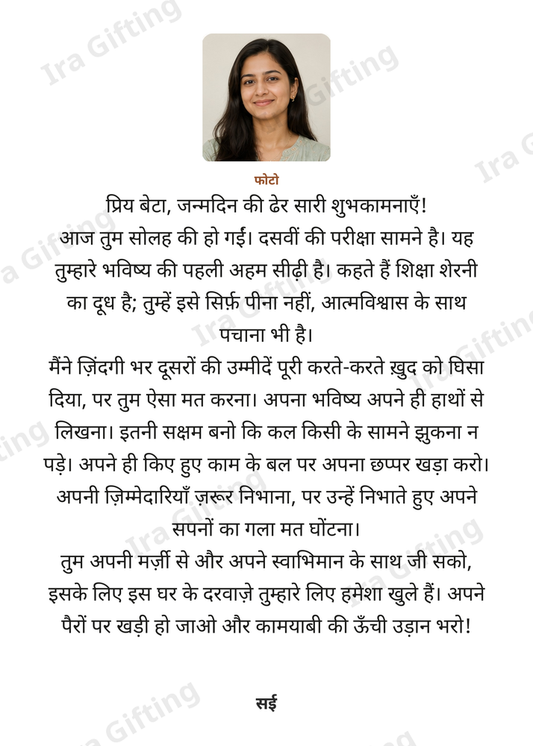 फोटो
प्रिय बेटा, जन्मदिन की ढेर सारी शुभकामनाएँ!
आज तुम सोलह की हो गईं। दसवीं की परीक्षा सामने है। यह
तुम्हारे भविष्य की पहली अहम सीढ़ी है। कहते हैं शिक्षा शेरनी
का दूध है; तुम्हें इसे सिर्फ़ पीना नहीं, आत्मविश्वास के साथ
पचाना भी है।
मैंने ज़िंदगी भर दूसरों की उम्मीदें पूरी करते-करते ख़ुद को घिसा
दिया, पर तुम ऐसा मत करना। अपना भविष्य अपने ही हाथों से
लिखना। इतनी सक्षम बनो कि कल किसी के सामने झुकना न
पड़े। अपने ही किए हुए काम के बल पर अपना छप्पर खड़ा करो।
अपनी ज़िम्मेदारियाँ ज़रूर निभाना, पर उन्हें निभाते हुए अपने
सपनों का गला मत घोंटना।
तुम अपनी मर्ज़ी से और अपने स्वाभिमान के साथ जी सको,
इसके लिए इस घर के दरवाज़े तुम्हारे लिए हमेशा खुले हैं। अपने
पैरों पर खड़ी हो जाओ और कामयाबी की ऊँची उड़ान भरो!
सई
Ira Gifting